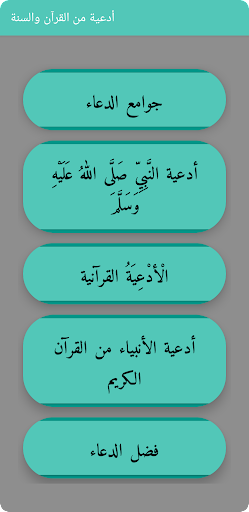 أدعية من القرآن والسنة
جوامع الدعاء
أدعية النَّبِيّ صَلَّى اللهُ عَلَيْهِ
وَسَلَّمَ
الْأدْعِيَةُ القرآنية
أدعية الأنبياء من القرآن
الكريم
فضل الدعاء